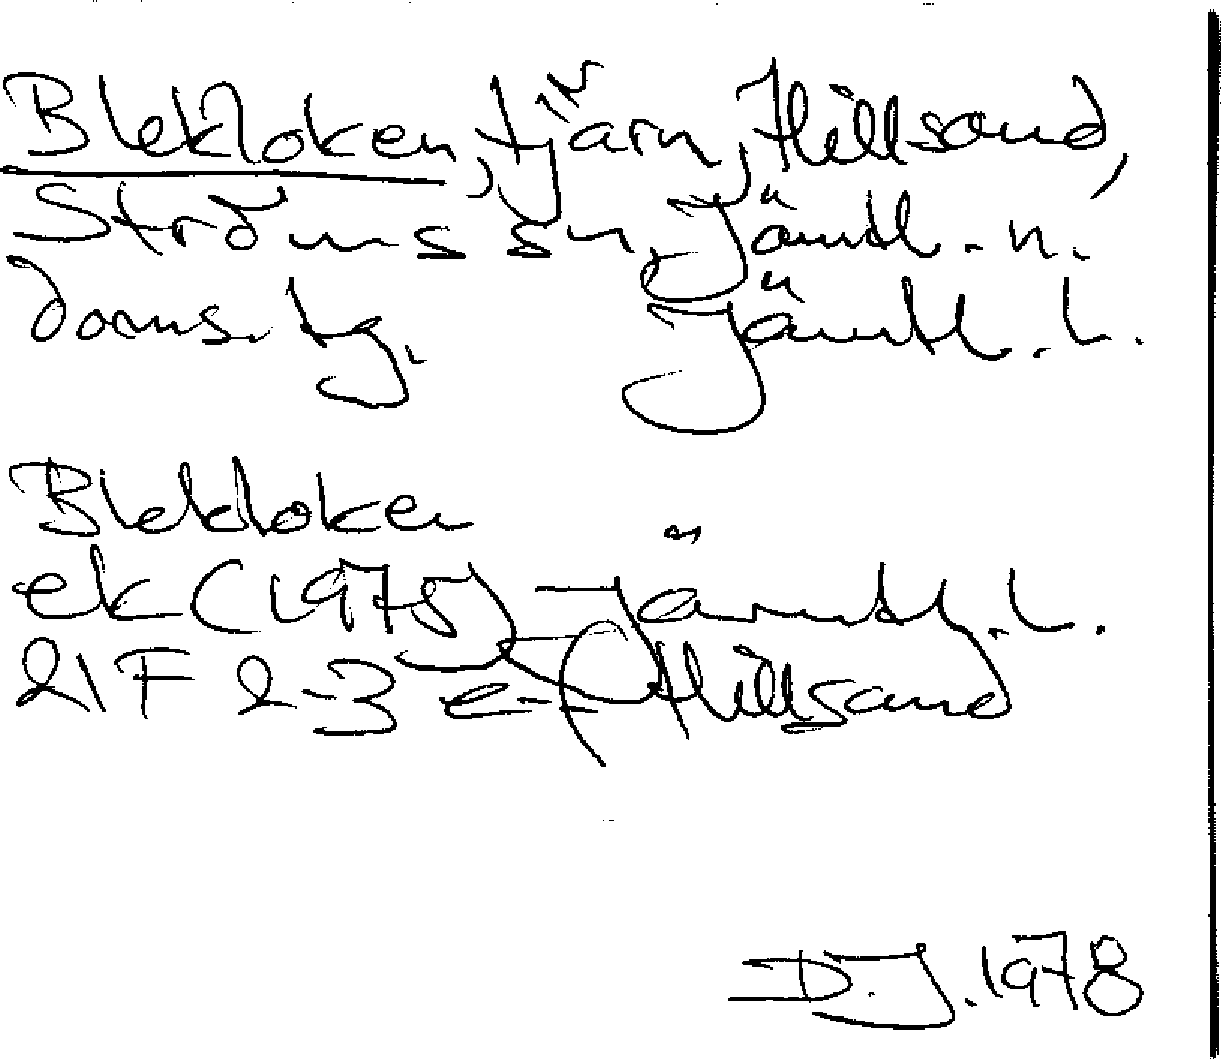 Blekloken, tjärn, Hillsand,
Ströms sn, Jämtl. n.
doms. tg. Jämtl. l.
Blekloken
ek (1975) Jämtl. l.
21F 2-3 e-f Hillsand
D.J. 1978